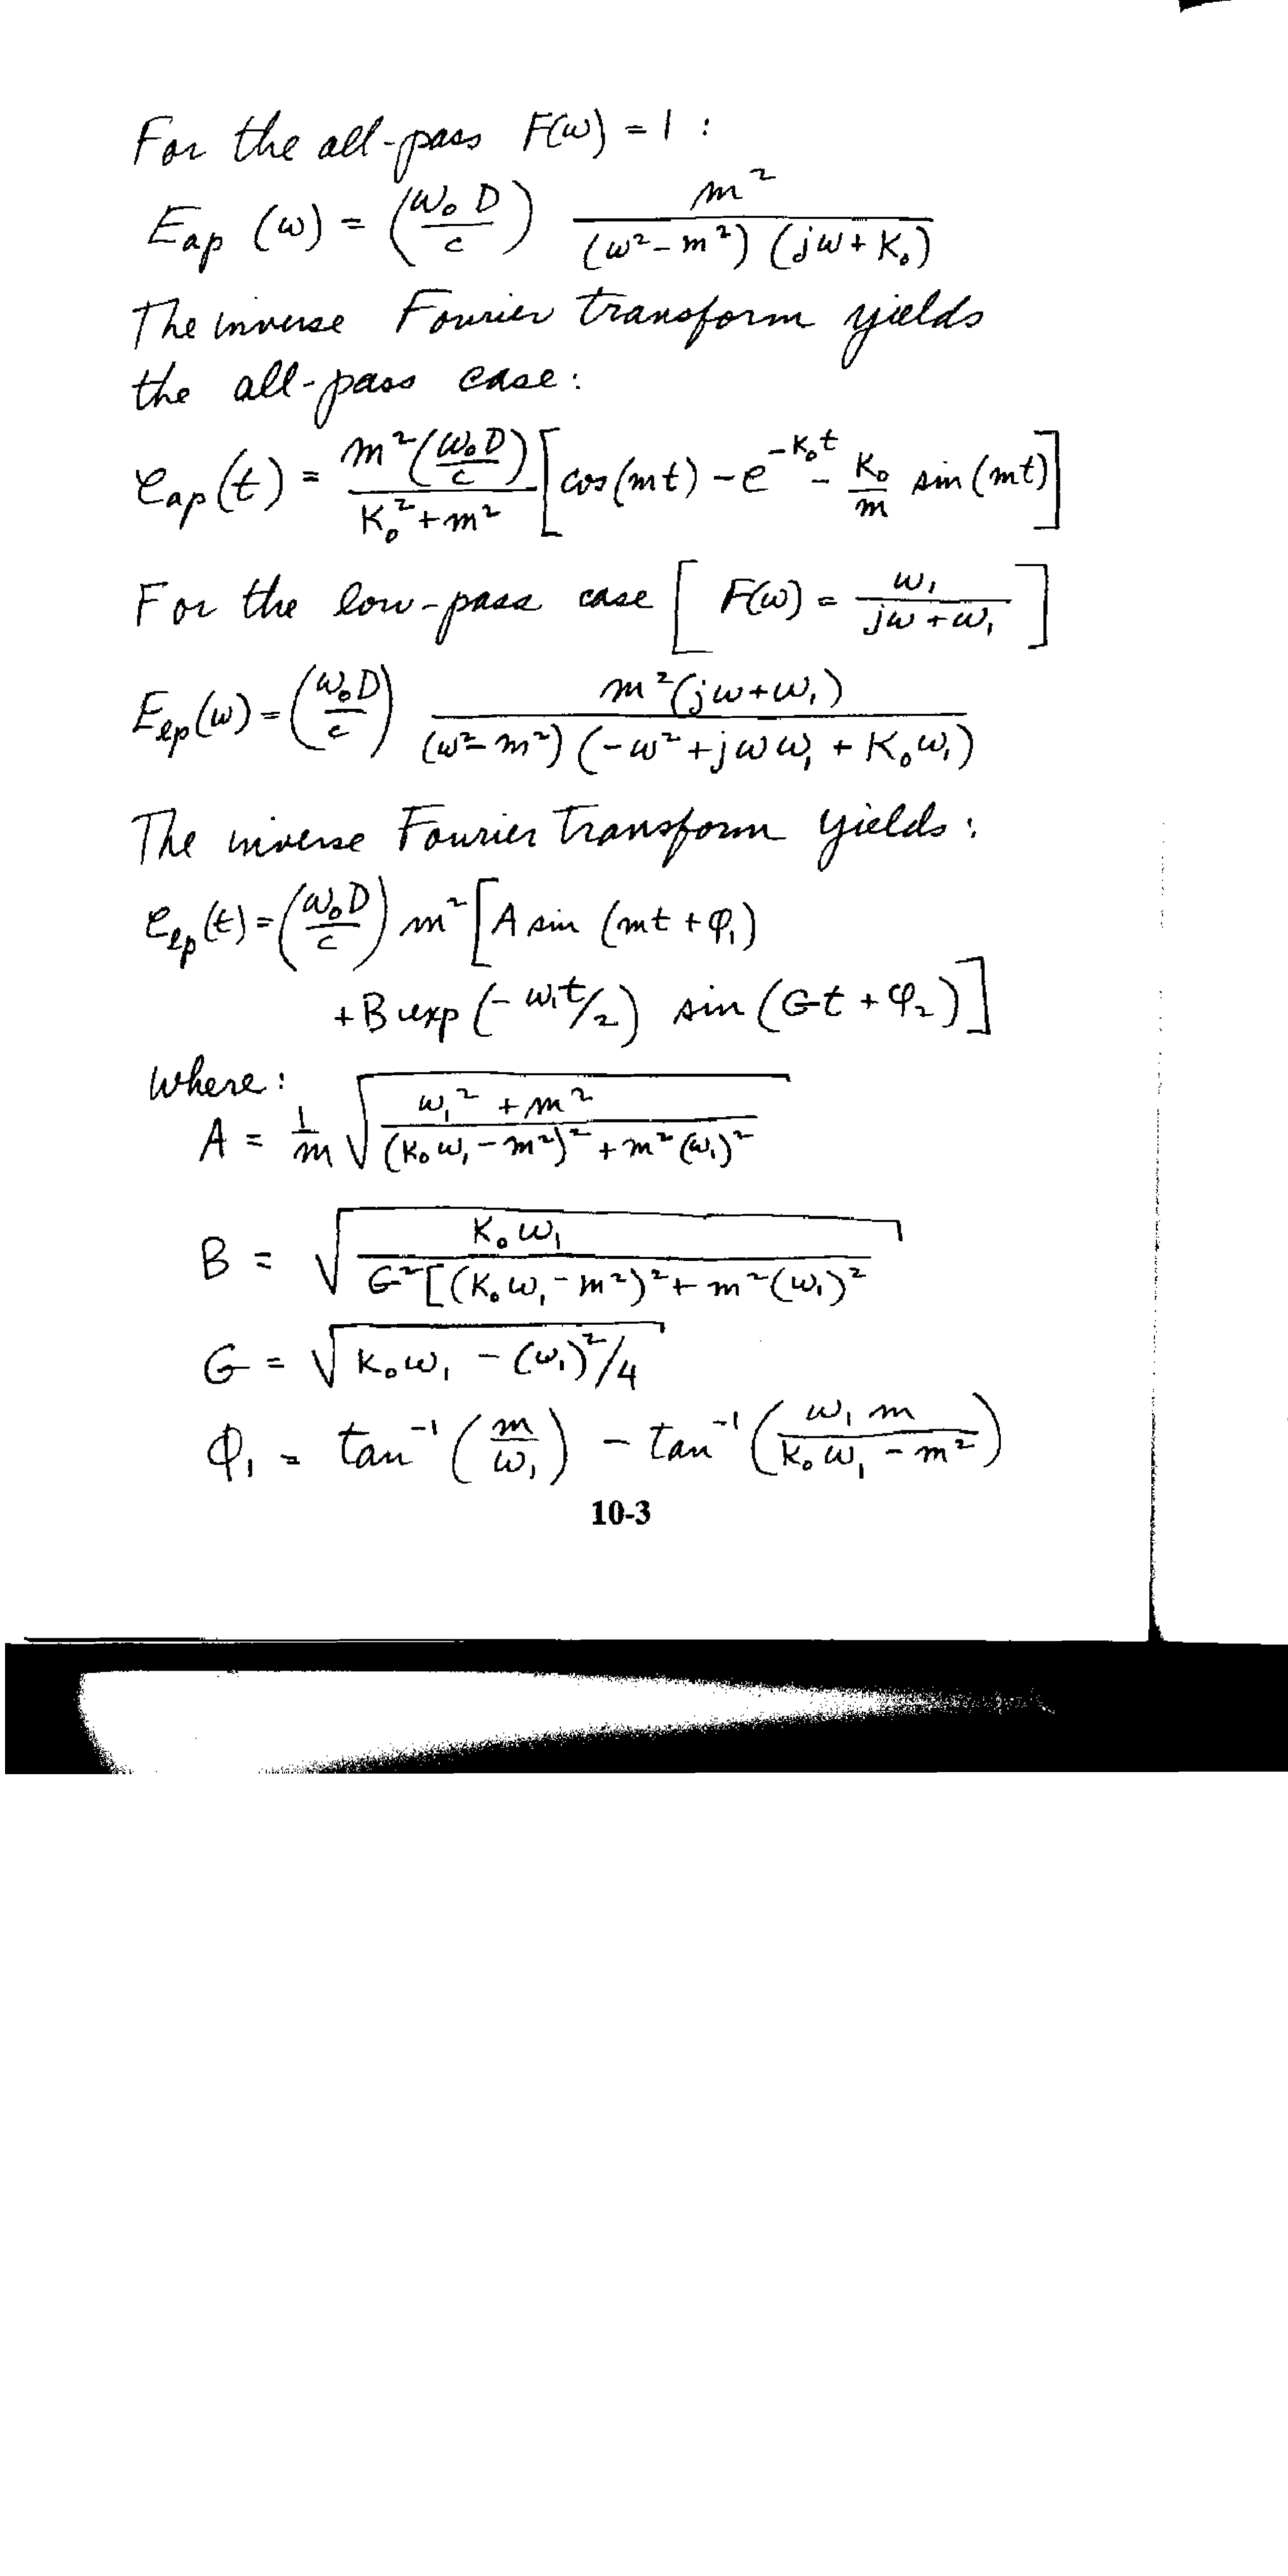 For the all-pass F(ω) = 1 :
E_ap (ω) = (ω₀ D / c) m² / ((ω² - m²) (jω + K₀))
The inverse Fourier transform yields
the all-pass case:
e_ap(t) = m² (ω₀D / c) / (K₀² + m²) [cos(mt) - e^(-K₀t) - K₀/m sin(mt)]
For the low-pass case [ F(ω) = ω₁ / (jω + ω₁) ]
E_lp(ω) = (ω₀D / c) m²(jω + ω₁) / ((ω² - m²) (-ω² + jωω₁ + K₀ω₁))
The inverse Fourier transform yields:
e_lp(t) = (ω₀D / c) m² [A sin (mt + φ₁)
+ B exp (-ω₁t/2) sin (Gt + φ₂)]
where:
A = 1/m √((ω₁² + m²) / ((K₀ω₁ - m²)² + m²(ω₁)²))
B = √(K₀ω₁ / (G²[(K₀ω₁ - m²)² + m²(ω₁)²))
G = √(K₀ω₁ - (ω₁)²/4)
φ₁ = tan⁻¹ (m / ω₁) - tan⁻¹ (ω₁ m / (K₀ω₁ - m²))
10-3